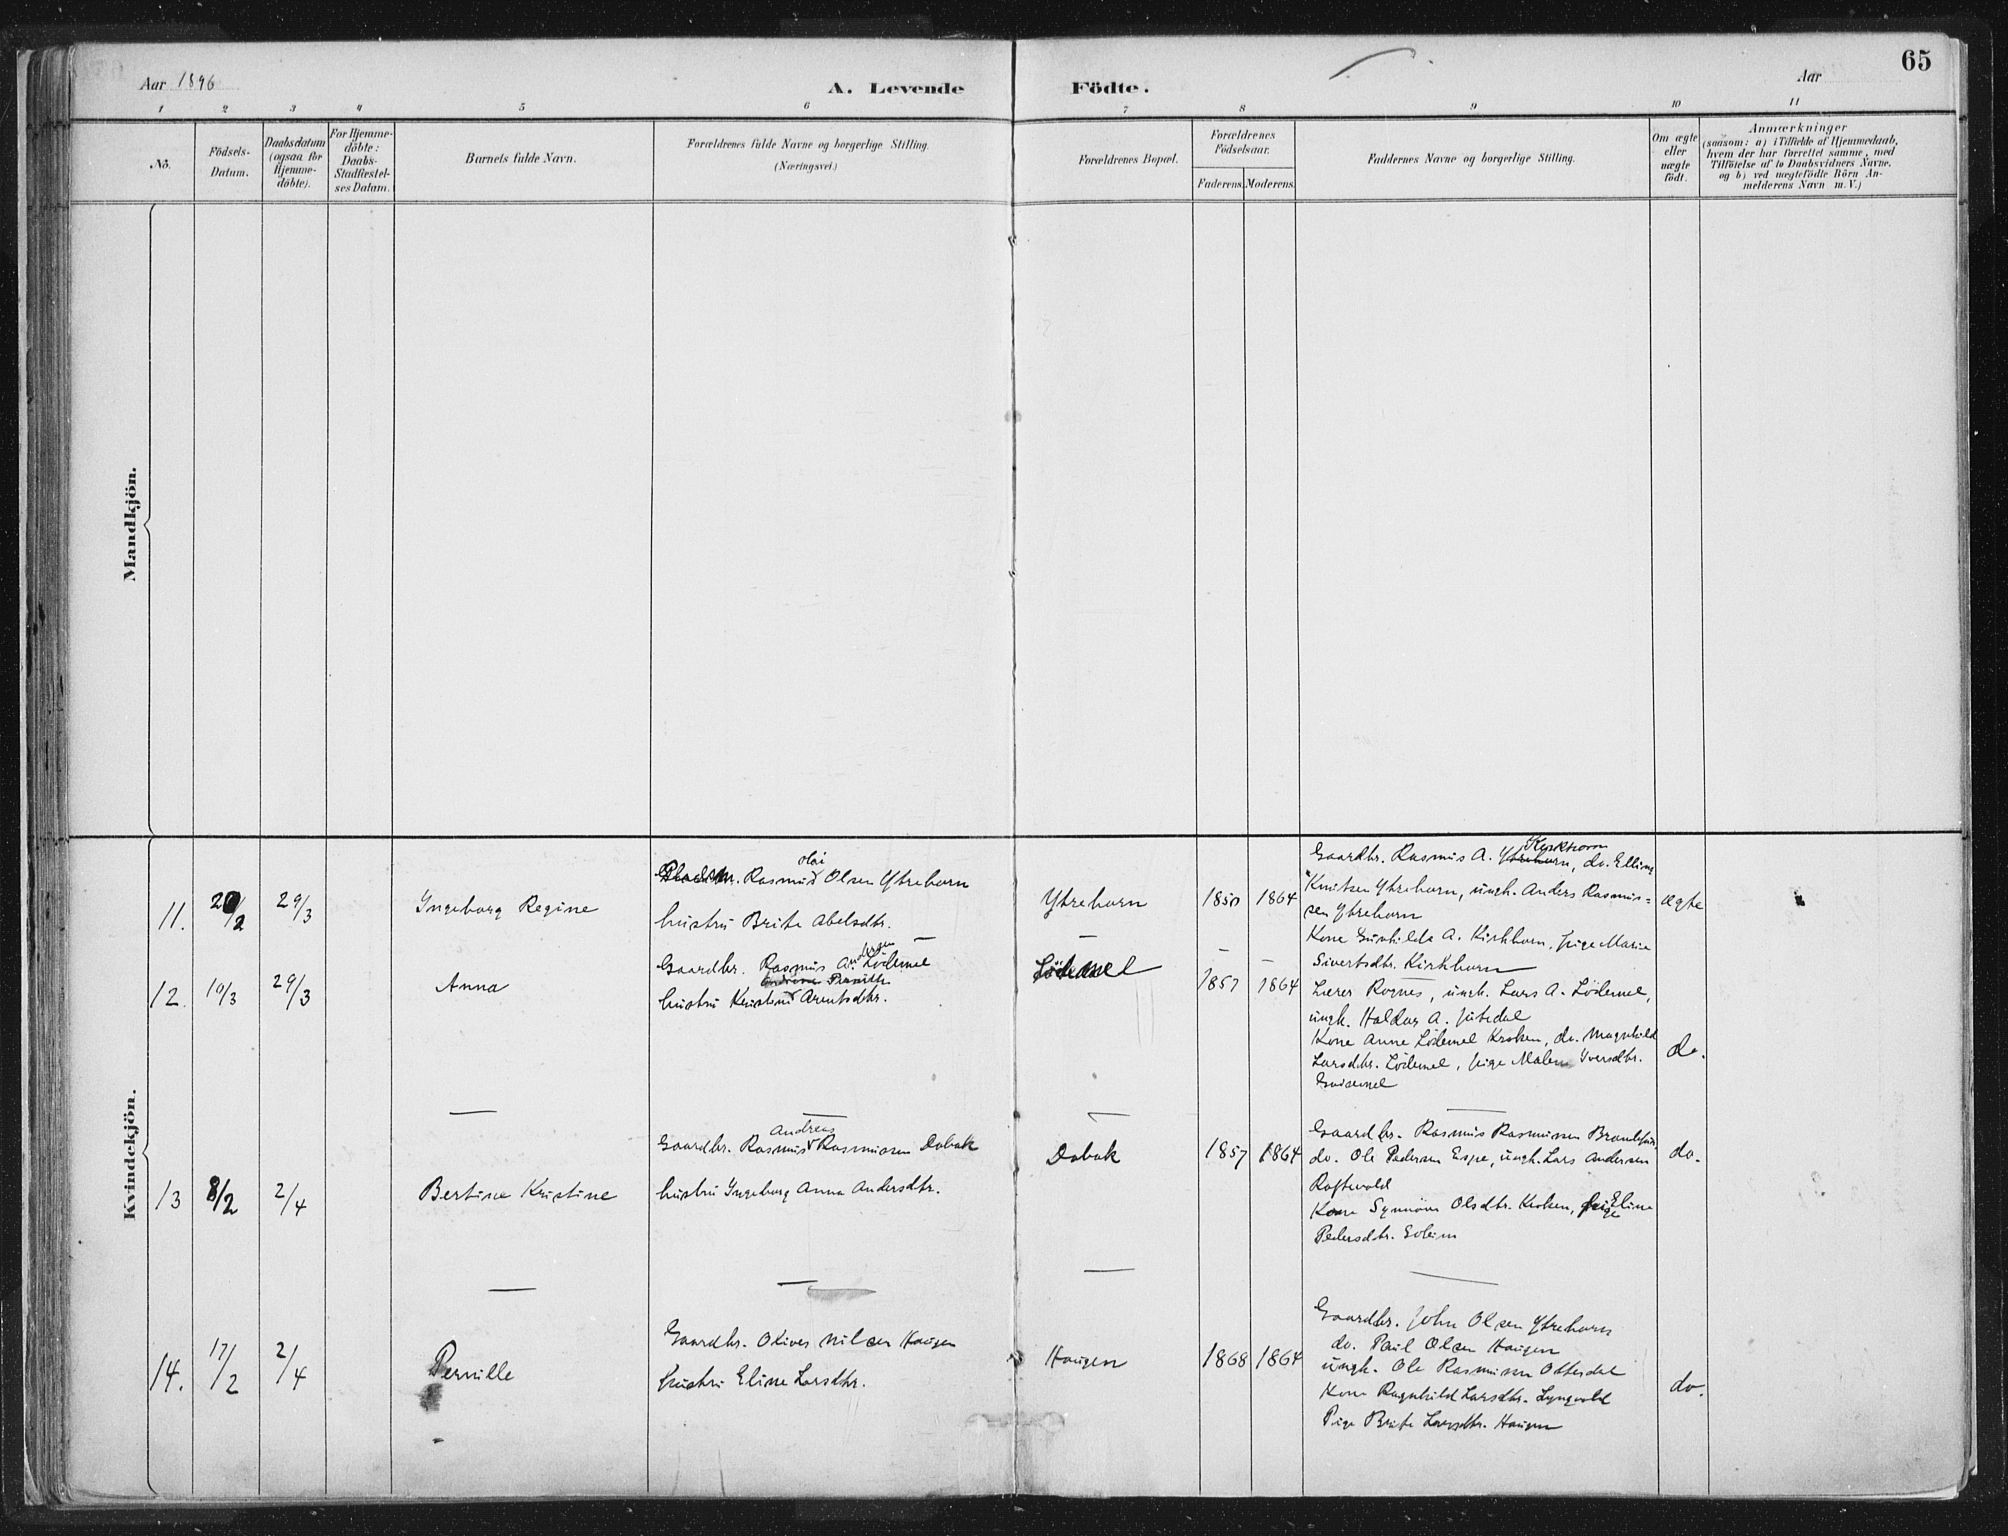 65
Aar 1896 A. Levende Födte. Aar
1 2 3 4 5 6 7 8 9 10 11
No.
Födsels-
Datum.
Daabsdatum
(ogsaa for
Hjemme-
döbte).
For Hjemme-
döbte:
Daabs-
Stadfæstel-
ses Datum.
Barnets fulde Navn.
Forældrenes fulde Navne og borgerlige Stilling.
(Næringsvei.)
Forældrenes Bopæl.
Forældrenes
Födselsaar.
Faderens. Moderens.
Faddernes Navne og borgerlige Stilling.
Om ægte
eller
uægte
födt.
Anmærkninger
(saasom: a) i Tilfælde af Hjemmedaab,
hvem der har forrettet samme, med
Tilföielse af to Daabsvidners Navne,
og b) ved uægtefödte Börn An-
melderens Navn m.V.)
Mandkjön.
Kvindekjön.
11. 20/2 29/3
Ingeborg Regine
Olai
Rasmus Olsen Ytrehorn
hustru Brite Abelsdtr.
Ytrehorn
1850 1864
Kirkhorn
Gaardbr. Rasmus A. Ytrehorn, do. Elling
Knutsen Ytrehorn, ungk. Anders Rasmus-
sen Ytrehorn
Kone Gunhilda A. Kirkhorn, pige Marie
Sivertsdtr. Kirkhorn
ægte
12. 10/3 29/3
Anna
Gaardbr. Rasmus Andersen Lödemel
hustru Arentsdtr.
Lödemel
1857 1864
Lærer Rognes, ungk. Lars A. Lödemel,
ungk. Haldor A.
Kone Anne Lödemel Kroken, do. Magnhild
Larsdtr. Lödemel, pige Malene Iversdtr.
do.
13 8/2 2/4
Bertine Kristine
Andreas
Gaardbr. Rasmus Rasmussen Dabak
hustru Ingeborg Anna Andersdtr.
Dabak
1857 1864
Gaardbr. Rasmus Rasmussen
do. Ole Pedersen Espe, ungk. Lars Andersen
Raftevold
Kone Synnöve Olsdtr. Kroken, pige Eline
Pedersdtr.
do.
14. 17/2 2/4
Pernille
Gaardbr. Oliver Nilsen Haugen
hustru Eline Larsdtr.
Haugen
1868 1864
Gaardbr. John Olsen Ytrehorn
do. Paul Olsen Haugen
ungk. Ole Rasmussen Otterdal
Kone Ragnhild Larsdtr. Lyngvold
Pige Brite Larsdtr. Haugen
do.